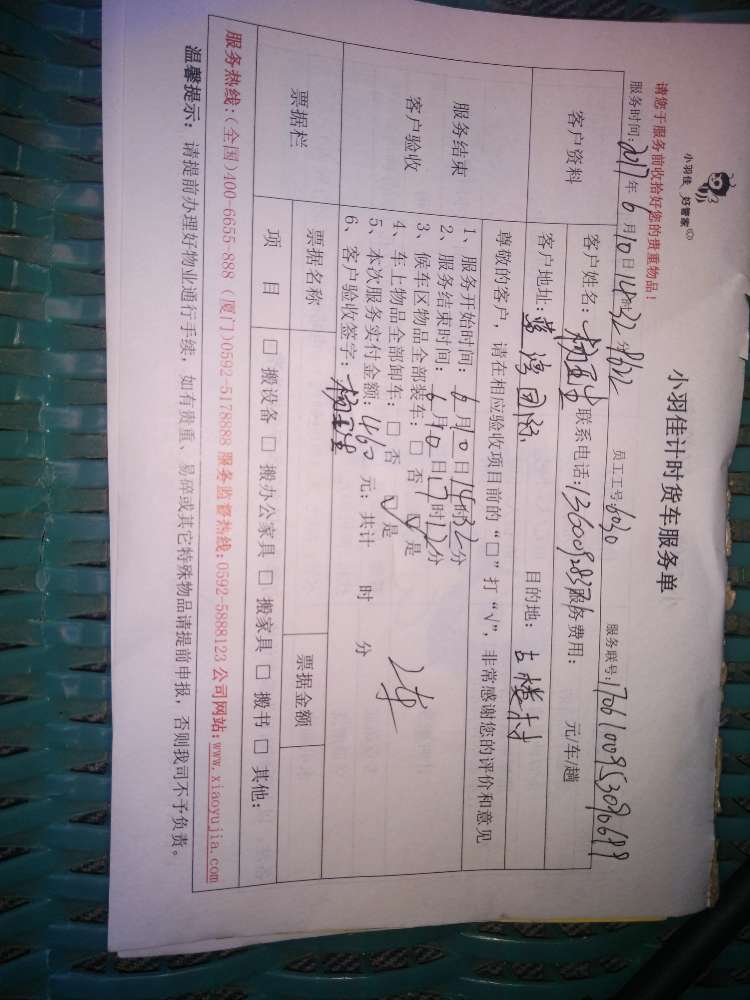 小羽佳 好管家
小羽佳计时货车服务单
请您于服务前收拾好您的贵重物品！
服务时间：2017年6月10日14时32分 员工工号：6030 服务联号：
客户资料
客户姓名： 联系电话： 服务费用： 元/车/趟
客户地址： 园 目的地： 古楼村
尊敬的客户，请在相应验收项目前的“□”打“√”，非常感谢您的评价和意见
服务结束
客户验收
1、服务开始时间：6月10日14时32分
2、服务结束时间：6月10日17时12分
3、候车区物品全部装车：□ 否 √ 是
4、车上物品全部卸车：□ 否 √ 是
5、本次服务实付金额：460元；共计 时 分
6、客户验收签字：
票据栏
票据名称 票据金额
项 目 □ 搬设备 □ 搬办公家具 □ 搬家具 □ 搬书 □ 其他：
服务热线：（全国）400-6655-888（厦门）0592-5178888 服务监督热线：0592-5888123 公司网站：www.xiaoyujia.com
温馨提示：请提前办理好物业通行手续，如有贵重、易碎或其它特殊物品请提前申报，否则我司不予负责。